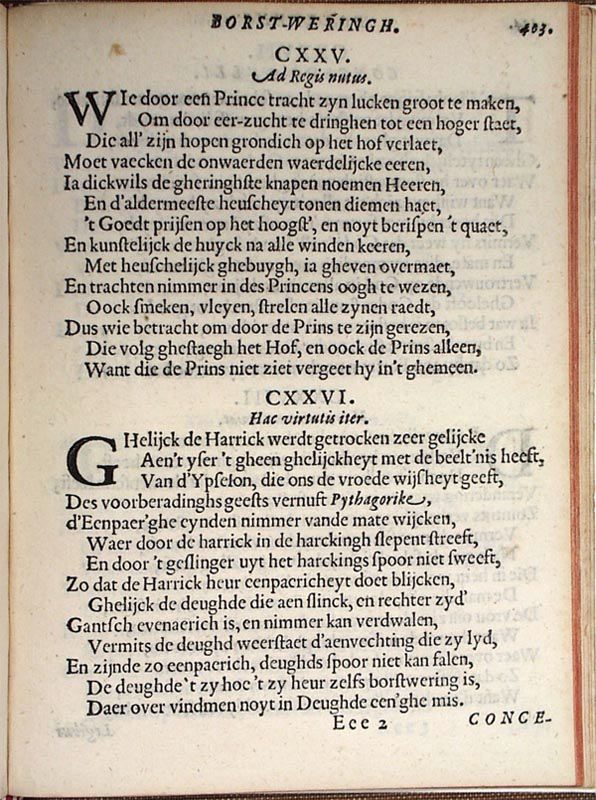 BORST-WERINGH. 403.
CXXV.
Ad Regis nutus.
WIe door een Prince tracht zyn lucken groot te maken,
Om door eer-zucht te dringhen tot een hoger staet,
Die all' zijn hopen grondich op het hof verlaet,
Moet vaecken de onwaerden waerdelijcke eeren,
Ia dickwils de gheringhste knapen noemen Heeren,
En d'aldermeeste heuscheyt tonen diemen haet,
't Goedt prijsen op het hoogst', en noyt berispen 't quaet,
En kunstelijck de huyck na alle winden keeren,
Met heuschelijck ghebuygh, ia gheven overmaet,
En trachten nimmer in des Princens oogh te wezen,
Oock smeken, vleyen, strelen alle zynen raedt,
Dus wie betracht om door de Prins te zijn gerezen,
Die volg ghestaegh het Hof, en oock de Prins alleen,
Want die de Prins niet ziet vergeet hy in't ghemeen.
CXXVI.
Hac virtutis iter.
GHelijck de Harrick werdt getrocken zeer gelijcke
Aen't yser 't gheen ghelijckheyt met de beelt'nis heeft,
Van d'Ypselon, die ons de vroede wijsheyt geeft,
Des voorberadinghs geests vernuft Pythagorike,
d'Eenpaer'ghe eynden nimmer vande mate wijcken,
Waer door de harrick in de harckingh slepent streeft,
En door 't geslinger uyt het harckings spoor niet sweeft,
Zo dat de Harrick heur eenpaericheyt doet blijcken,
Ghelijck de deughde die aen slinck, en rechter zyd'
Gantsch evenaerich is, en nimmer kan verdwalen,
Vermits de deughd weerstaet d'aenvechting die zy lyd,
En zijnde zo eenpaerich, deughds spoor niet kan falen,
De deughde 't zy hoe 't zy heur zelfs borstwering is,
Daer over vindmen noyt in Deughde een'ghe mis.
Eee 2 CONCE-